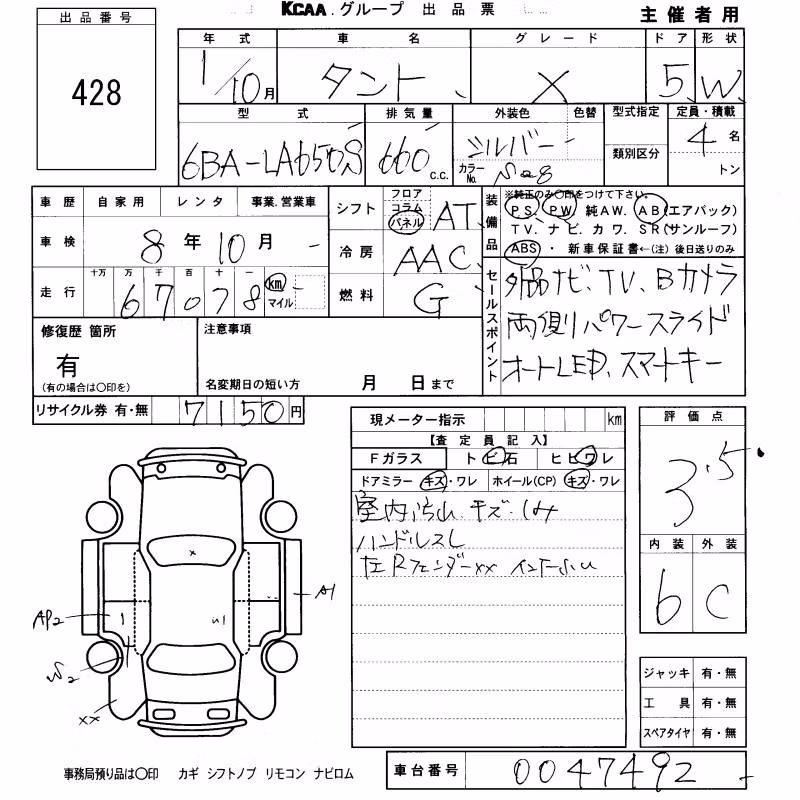 KCAA.グループ 出品票
主催者用
出品番号
428
年式 車名 グレード ドア 形状
1/10月 タント X 5 W
型式 排気量 外装色 色替 型式指定 定員・積載
6BA-LA650S 660c.c. シルバー 4名
カラーNo. 類別区分 トン
車歴 自家用 レンタ 事業.営業車
車検 8年10月
走行 十万 万 千 百 十 一
67078 km マイル
シフト フロア コラム パネル AT
冷房 AAC
燃料 G
装備品 ※純正のみ○印をつけて下さい。
PS. PW 純AW. AB(エアバック)
TV. ナビ. カワ. SR(サンルーフ)
ABS・新車保証書←(注)後日送りのみ
セールスポイント
外品ナビ、TV、Bカメラ
両側パワースライド
オートLED、スマートキー
修復歴 箇所
有
(有の場合は○印を)
注意事項
名変期日の短い方 月 日まで
リサイクル券 有・無 7150円
現メーター指示 km
【査定員記入】
Fガラス トビ石 ヒビワレ
ドアミラー キズ・ワレ ホイール(CP) キズ・ワレ
室内汚れ.キズ.しみ
ハンドルスレ
左Rフェンダーxx インナー
評価点
3.5
内装 外装
6 C
ジャッキ 有・無
工具 有・無
スペアタイヤ 有・無
x
A1
AP2
1
U1
xx
事務局預り品は○印 カギ シフトノブ リモコン ナビロム
車台番号 0047492